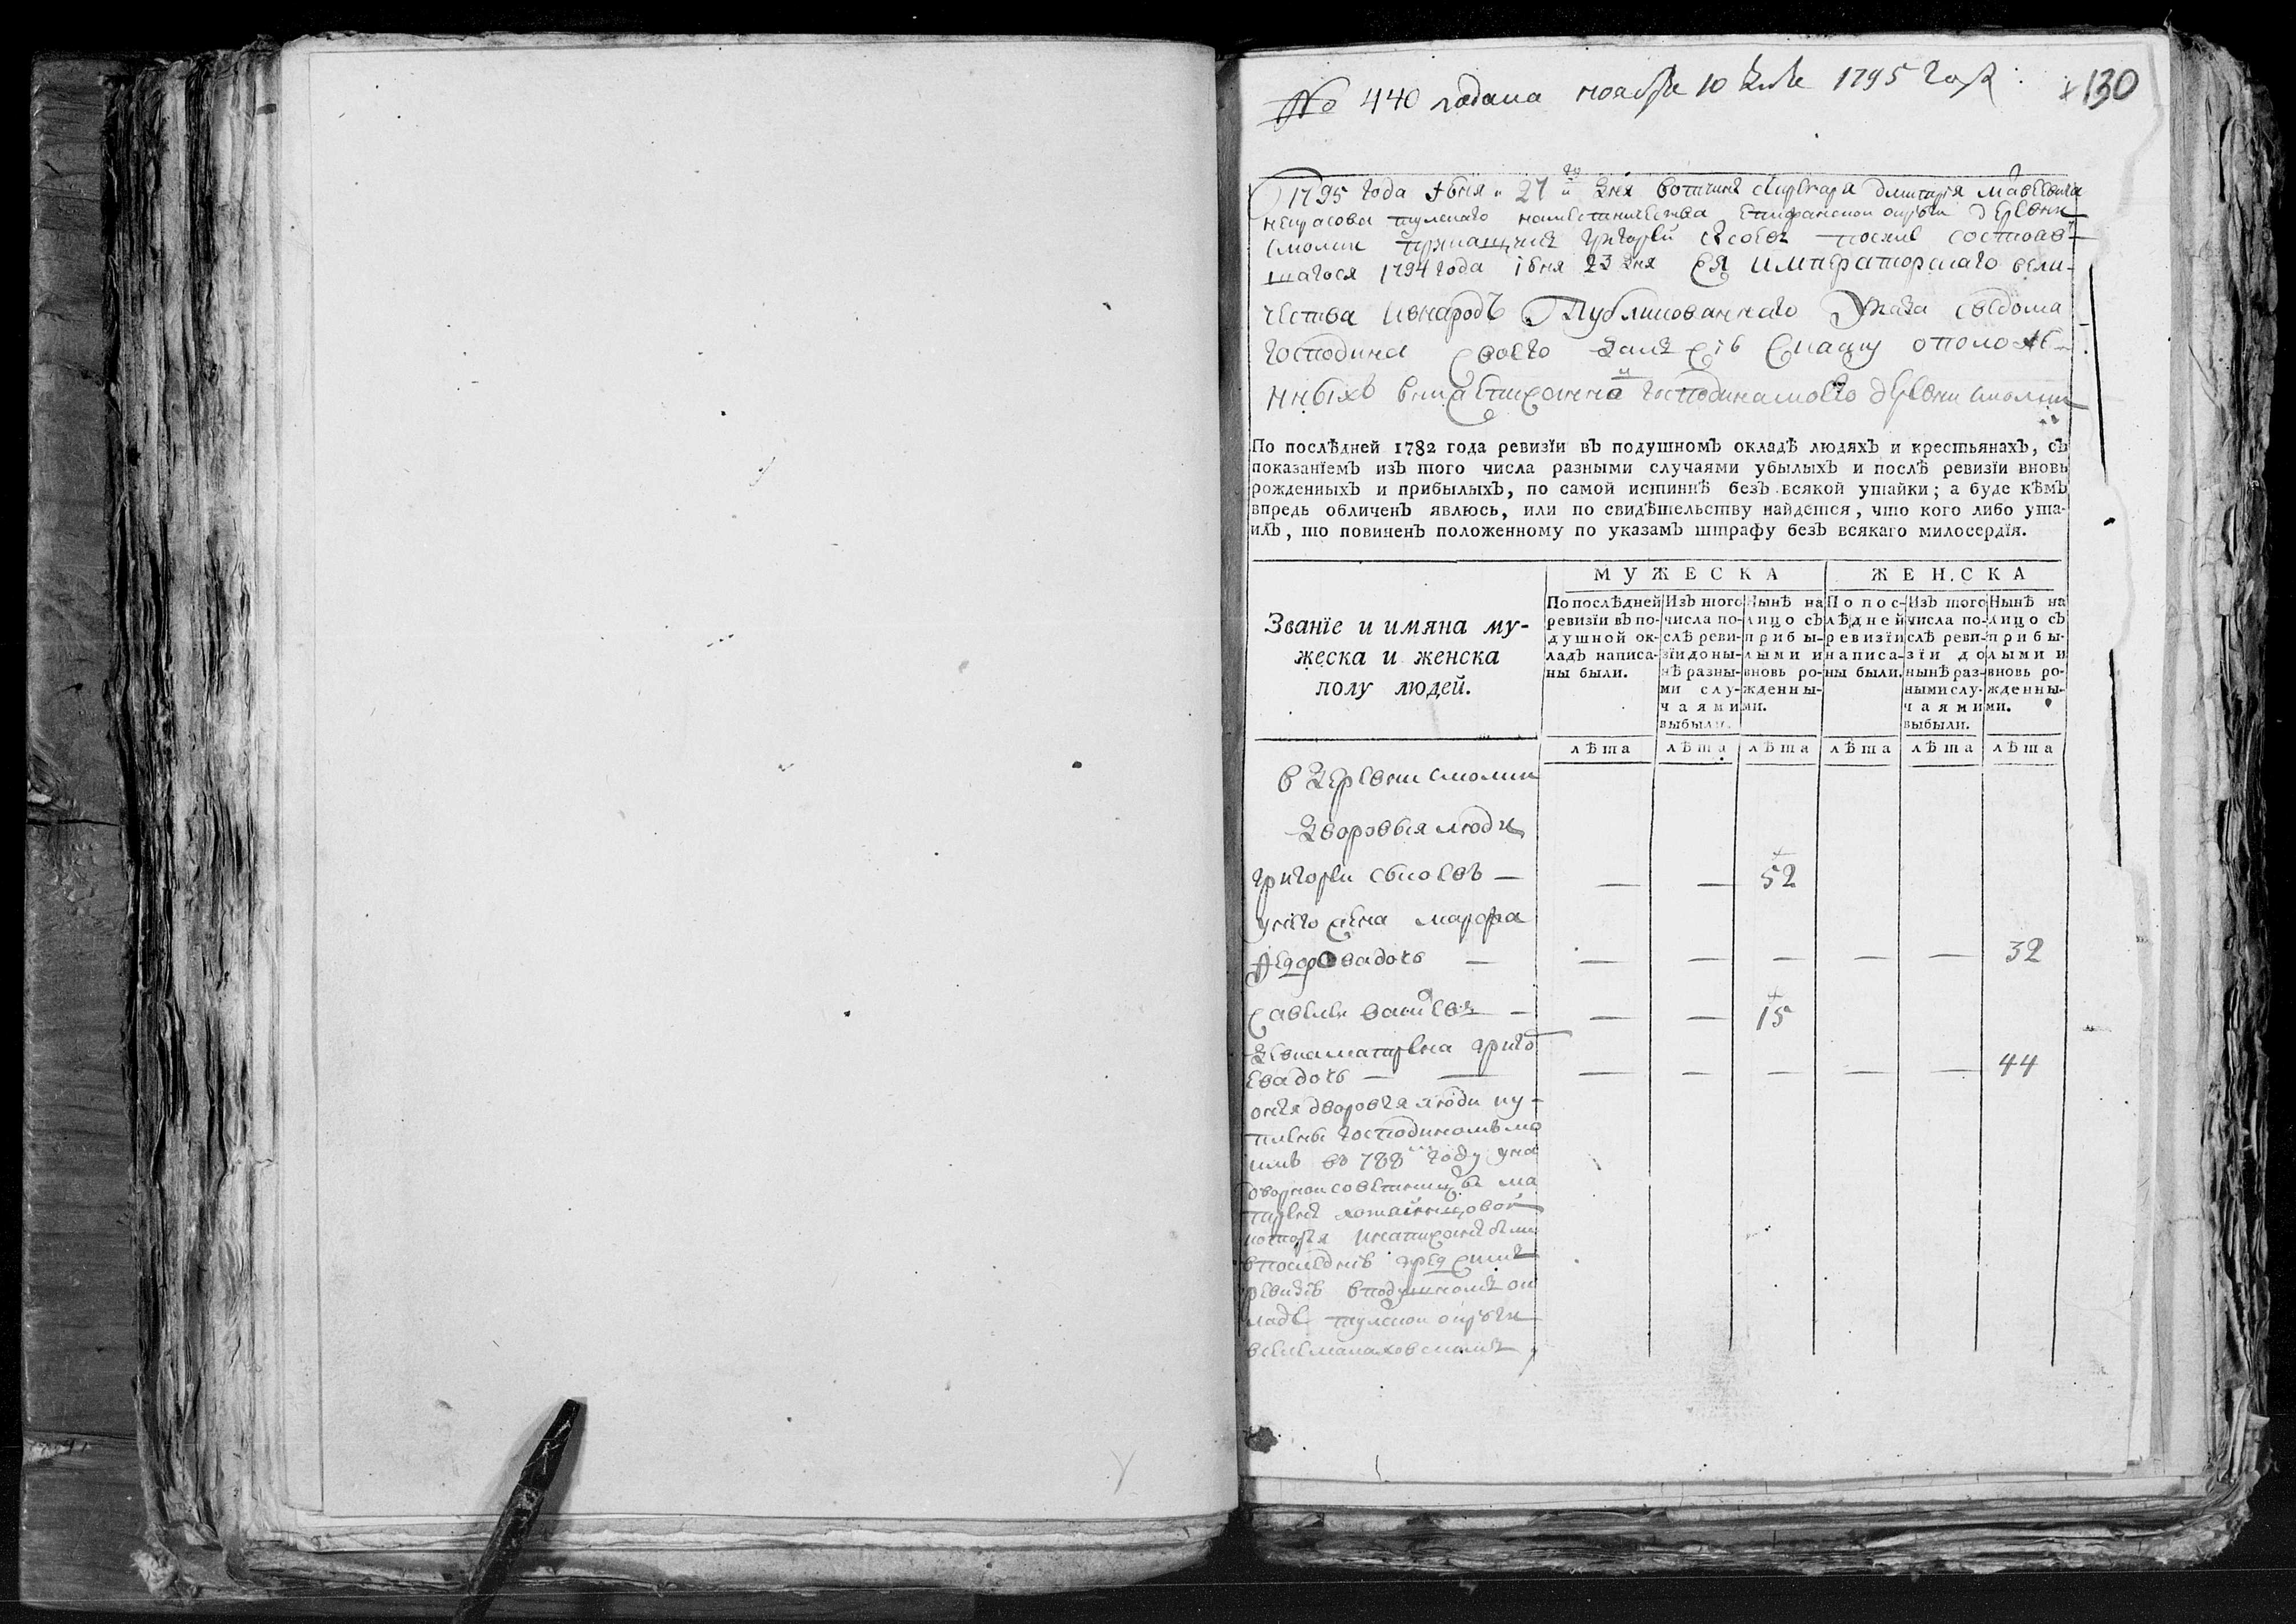 № 440 подана ноября 10 дня 1795 года
130
1795 года июня 27 го дня вотчины секретаря дмитрия
некрасова тулскаго наместничества епифанской округи деревни
смолки прикащикъ григорей сысоевъ после состояв-
шагося 1794 года июня 23 дня ея императорскаго вели-
чества и внародъ Публикованнаго Указа сведома
господина своего далъ сию скаску о положе-
нныхъ господина моего деревни смолки
По послѣдней 1782 года ревизїи въ подушномъ окладѣ людяхъ и крестьянахъ, съ
показанїемъ изъ того числа разными случаями убылыхъ и послѣ ревизїи вновь
рожденныхъ и прибылыхъ, по самой истиннѣ безъ всякой утайки; а буде кѣмъ
впредь обличенъ явлюсь, или по свидѣтельству найдется, что кого либо ута-
илъ, то повиненъ положенному по указамъ штрафу безъ всякаго милосердїя.
Званїе и имяна му-
жеска и женска
полу людей.
МУЖЕСКА
По послѣдней
ревизїи въ по-
душной ок-
ладъ написа-
ны были.
Изъ того
числа по-
слѣ реви-
зїи до ны-
нѣ разны-
ми слу-
чаями
выбыли.
Нынѣ на
лицо съ
прибы-
лыми и
вновь ро-
жденны-
ми.
ЖЕНСКА
По пос-
лѣдней
ревизїи
написа-
ны были.
Изъ того
числа по-
слѣ реви-
зїи до
нынѣ раз-
ными слу-
чаями
выбыли.
Нынѣ на
лицо съ
прибы-
лыми и
вновь ро-
жденны-
ми.
лѣта лѣта лѣта лѣта лѣта лѣта
в деревни смолки
дворовыя люди
григорей сысоевъ — — — 52
унего жена марфа
федорова дочь — — — — — — 32
савелей васильевъ — — — 15
девка матрена григо
ева дочь — — — — — — — 44
оныя дворовыя люди ку-
плены господиномъ мо
имъ въ 788 м году у на
дворной советницы ма
трены
которыя и написаны были
в последней пред симъ
ревизии в подушномъ ок
ладе тулской округи
в селе